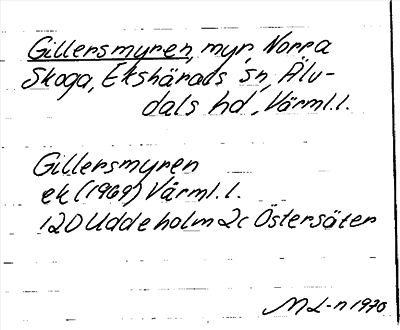 Gillersmyren, myr, Norra
Skoga, Ekshärads sn, Älv-
dals hd, Värml.l.
Gillersmyren
ek (1969) Värml.l.
12D Uddeholm 2c Östersäter
ML-n 1970